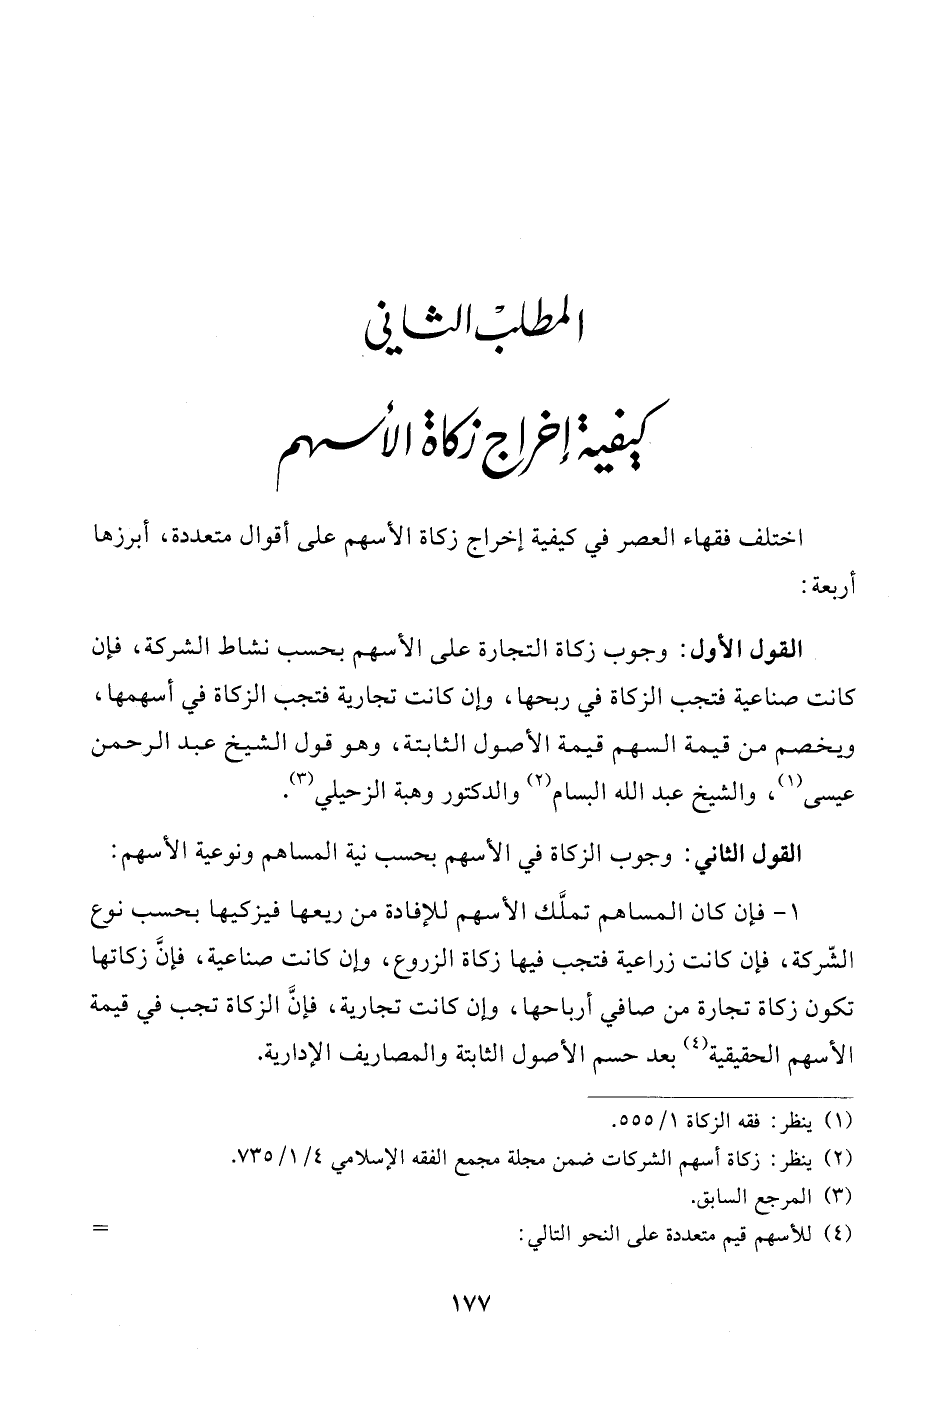 المطلب الثاني
كيفية إخراج زكاة الأسهم
اختلف فقهاء العصر في كيفية إخراج زكاة الأسهم على أقوال متعددة، أبرزها
أربعة:
القول الأول: وجوب زكاة التجارة على الأسهم بحسب نشاط الشركة، فإن
كانت صناعية فتجب الزكاة في ربحها، وإن كانت تجارية فتجب الزكاة في أسهمها،
ويخصم من قيمة السهم قيمة الأصول الثابتة، وهو قول الشيخ عبد الرحمن
عيسى(١)، والشيخ عبد الله البسام(٢) والدكتور وهبة الزحيلي(٣).
القول الثاني: وجوب الزكاة في الأسهم بحسب نية المساهم ونوعية الأسهم:
١- فإن كان المساهم تملَّك الأسهم للإفادة من ريعها فيزكيها بحسب نوع
الشّركة، فإن كانت زراعية فتجب فيها زكاة الزروع، وإن كانت صناعية، فإنَّ زكاتها
تكون زكاة تجارة من صافي أرباحها، وإن كانت تجارية، فإنَّ الزكاة تجب في قيمة
الأسهم الحقيقية(٤) بعد حسم الأصول الثابتة والمصاريف الإدارية.
(١) ينظر: فقه الزكاة ١/ ٥٥٥.
(٢) ينظر: زكاة أسهم الشركات ضمن مجلة مجمع الفقه الإسلامي ٤/ ١/ ٧٣٥.
(٣) المرجع السابق.
(٤) للأسهم قيم متعددة على النحو التالي: =
١٧٧